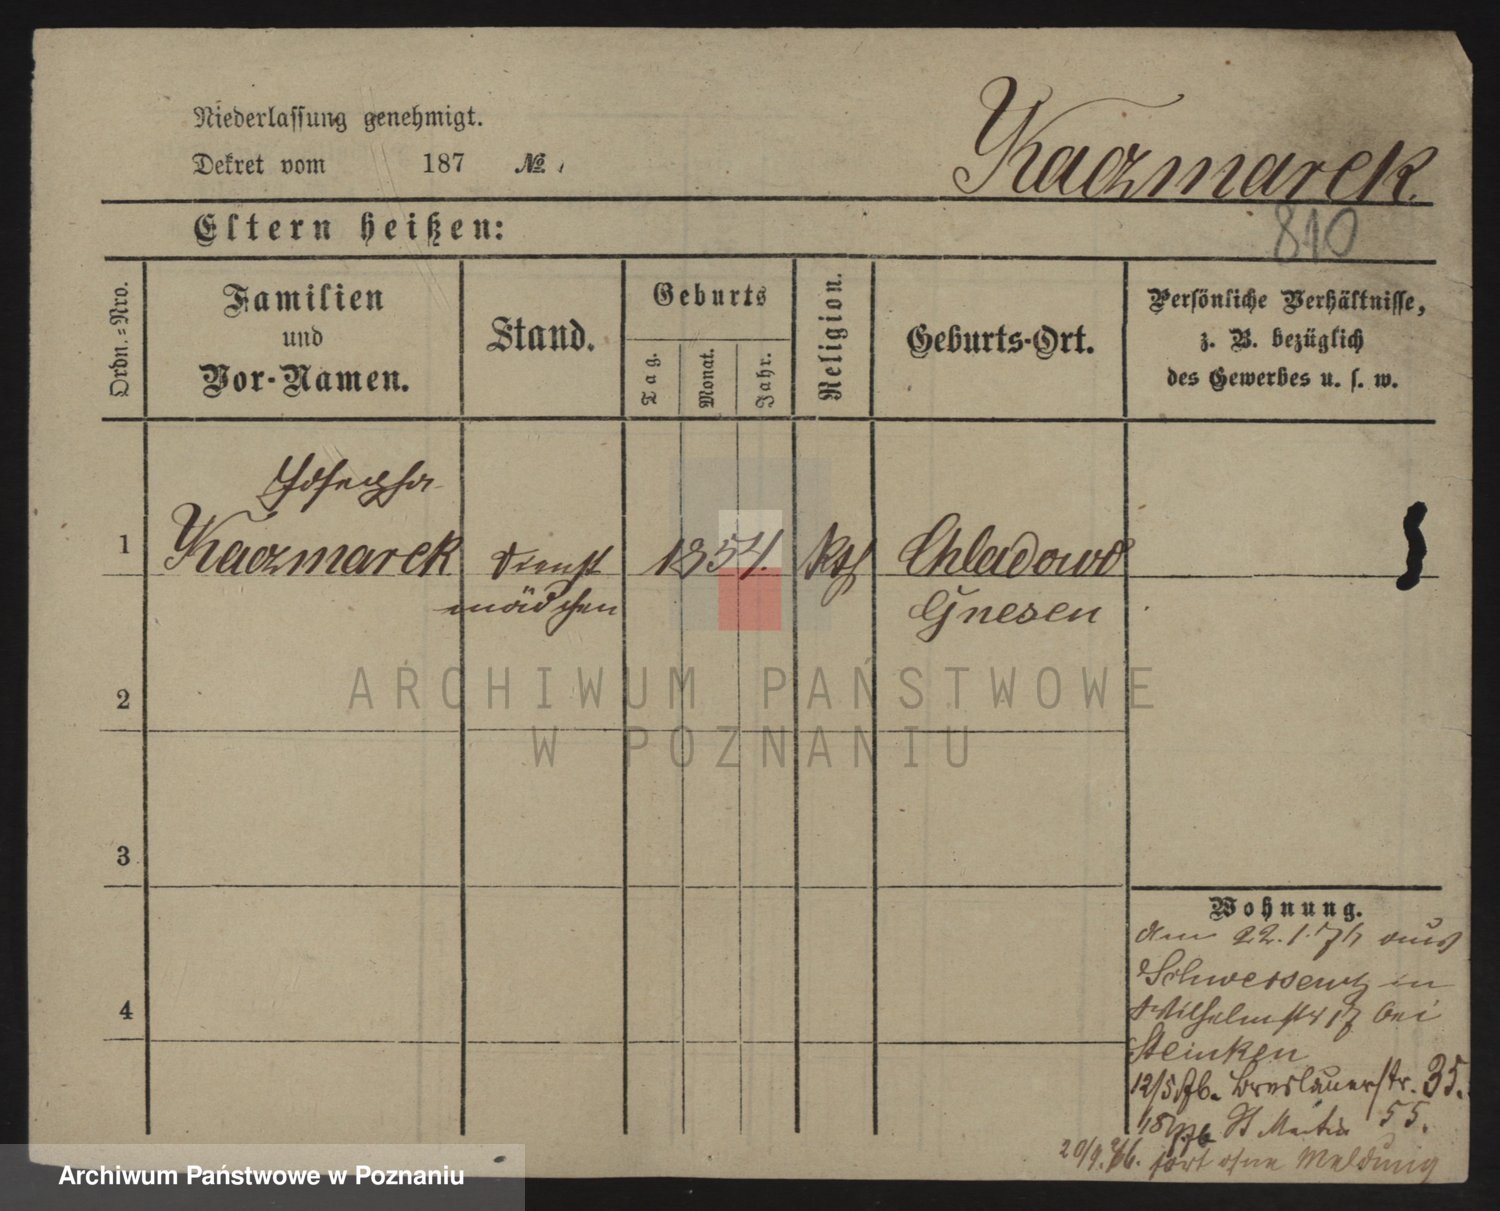 Niederlassung genehmigt.
Dekret vom 187 №
Kaczmarek.
810
Eltern heißen:
Ordn.-Nro.
Familien
und
Vor-Namen.
Stand.
Geburts
Tag.
Monat.
Jahr.
Religion.
Geburts-Ort.
Persönliche Verhältnisse,
z. B. bezüglich
des Gewerbes u. s. w.
Josepha
1 Kaczmarek Dienst 1854. kth Chladowo
mädchen Gnesen
2
3
4
ARCHIWUM PAŃSTWOWE
W POZNANIU
Wohnung.
den 22.1.76 aus
Schwersenz in
Wilhelmstr 17 bei
Steinken
12/5 76. Breslauerstr. 35.
St Martin 55.
20/9. 76. fort ohne Meldung
Archiwum Państwowe w Poznaniu